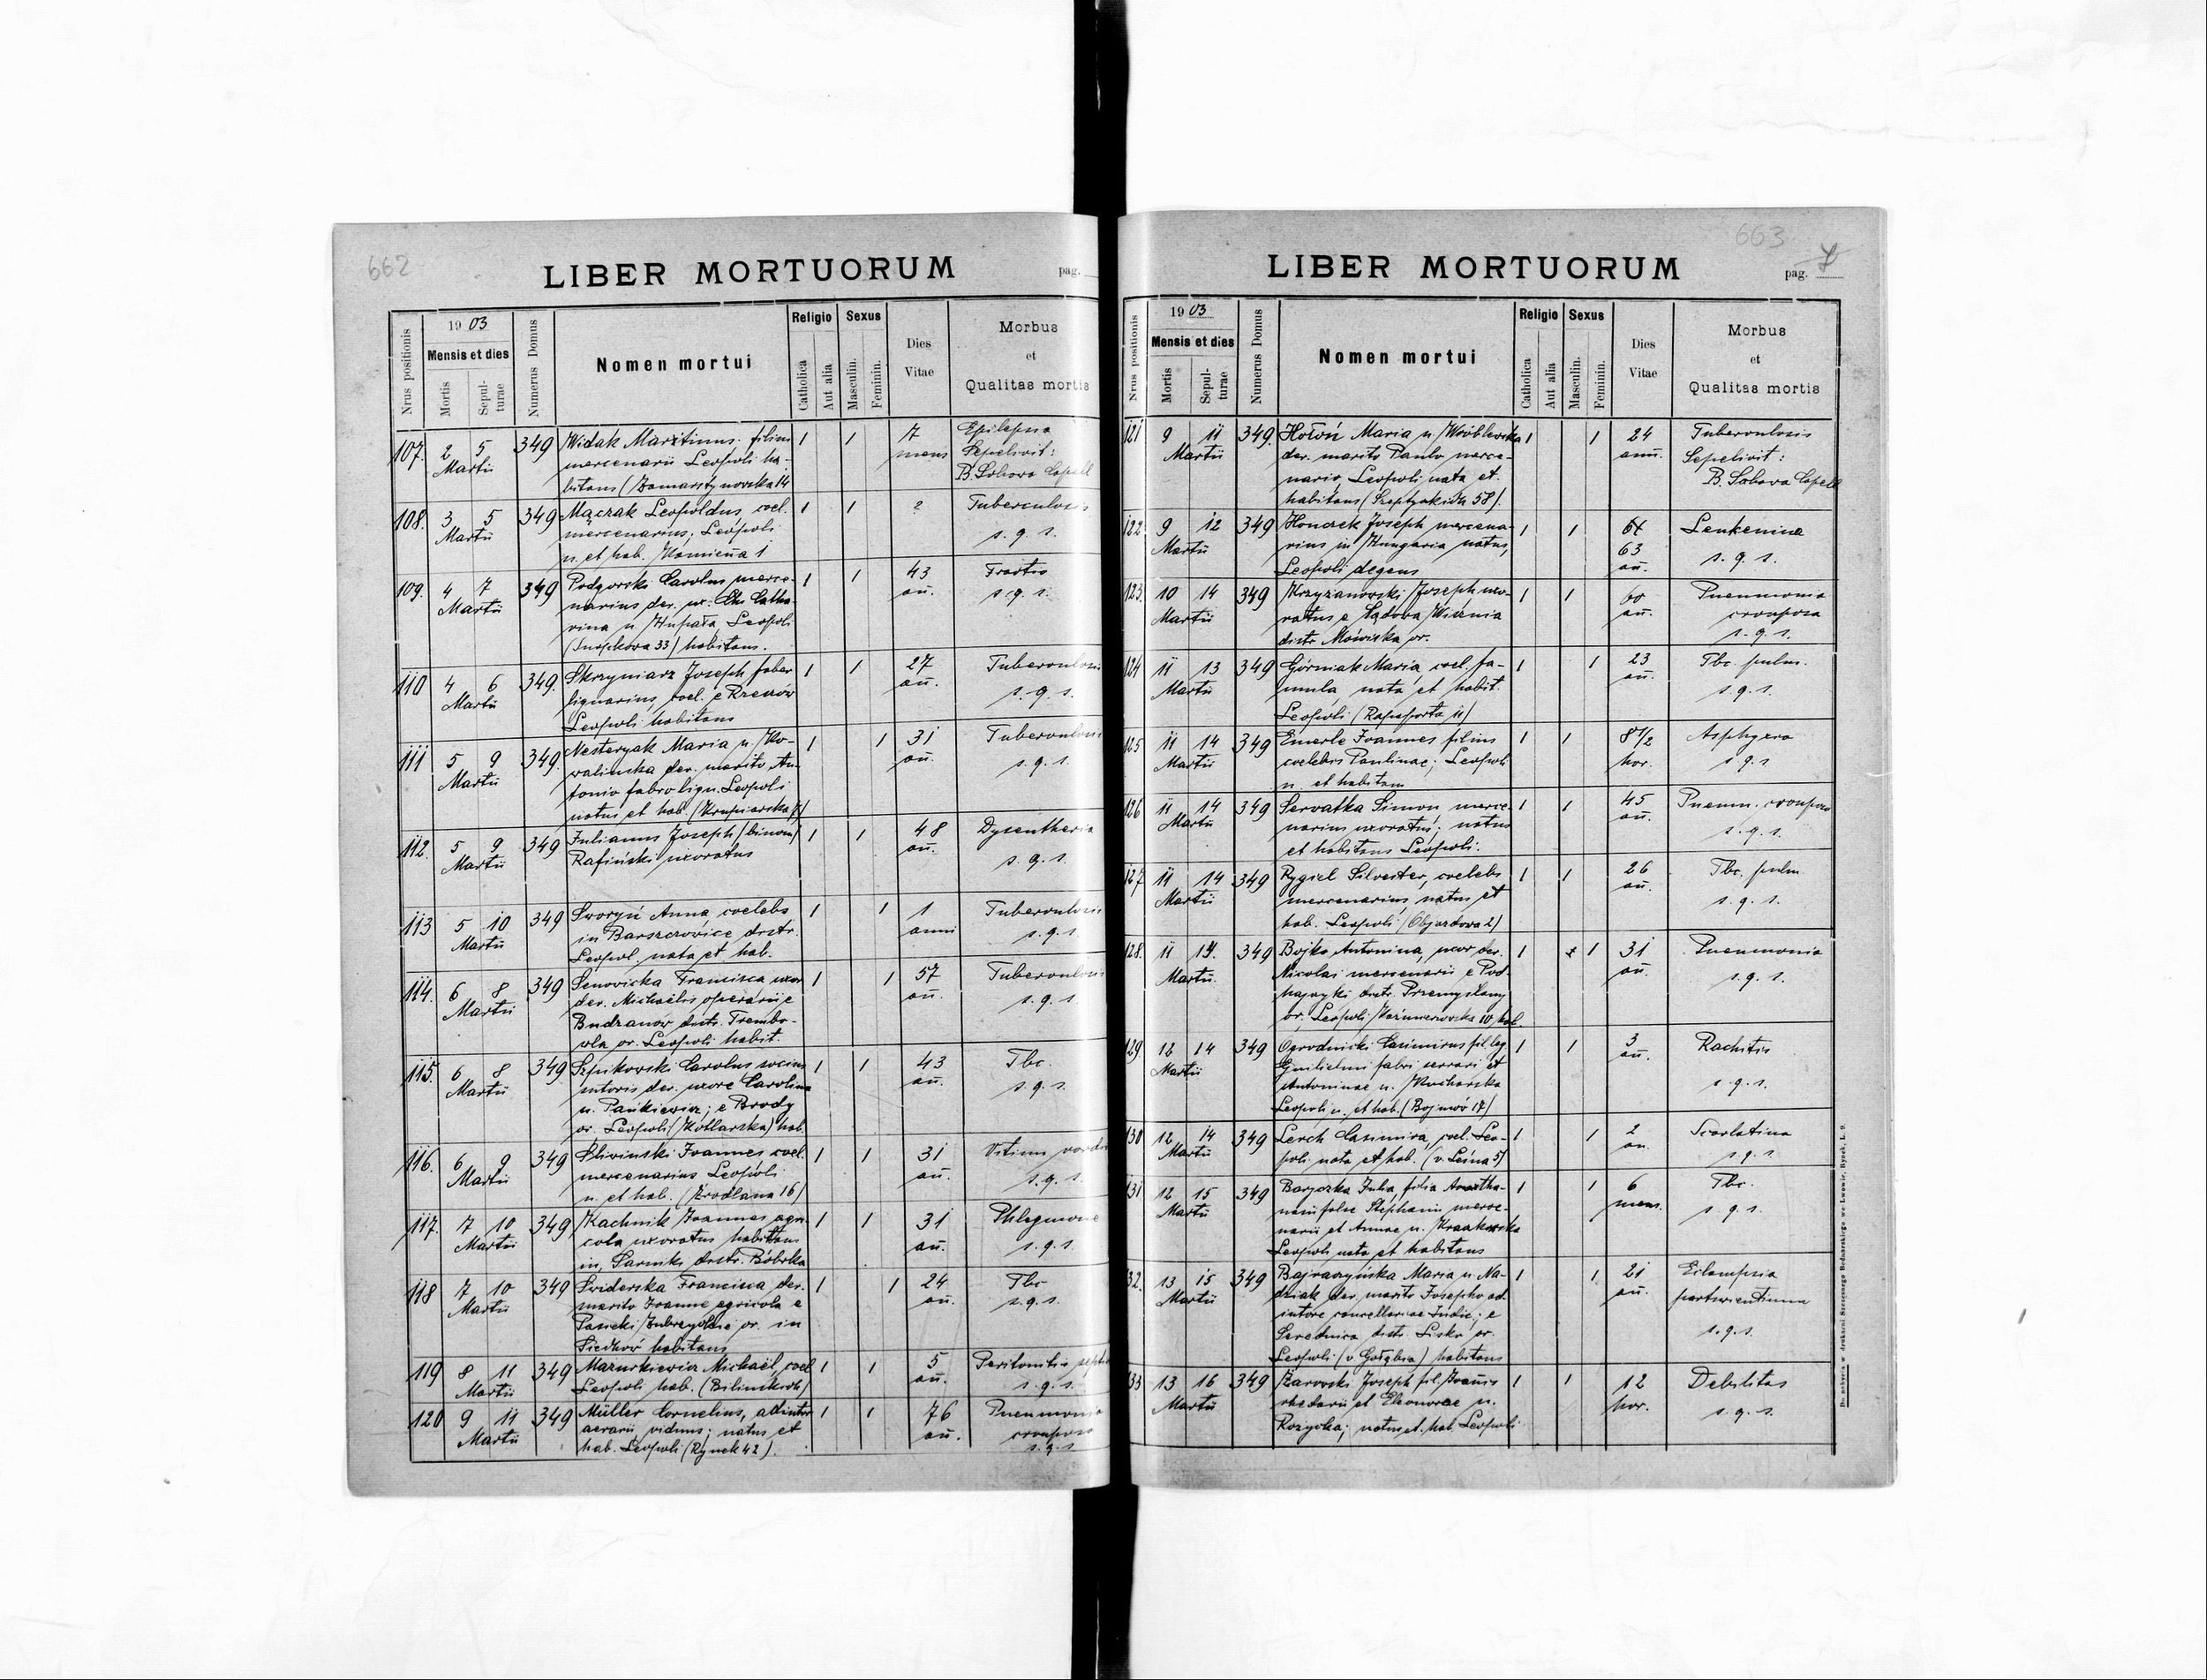 662
LIBER MORTUORUM
pag.
Nrus positionis
19 03
Mensis et dies
Mortis
Sepul-
turae
Numerus Domus
Nomen mortui
Religio
Catholica
Aut alia
Sexus
Masculin.
Feminin.
Dies
Vitae
Morbus
et
Qualitas mortis
107. 2 5 349 Widak Maritimus filius 1 1 7 Epilepsia
Martii mercenarii Leopoli ha- mens Sepelivit:
bitans (Zamarstynovska 14 B. Sobova Capell
108. 3 5 349 Mączak Leopoldus, coel. 1 1 ? Tuberculosis
Martii mercenarius; Leopoli s. q. s.
n. et hab. 1
109. 4 7 349 Podgorski Carolus merce- 1 1 43 
Martii narius der. ux. Catha- añ. s. q. s.
rina n. Hupała, Leopoli
33) habitans.
110 4 6 349. Skrzyniarz Joseph faber 1 1 27 Tuberculosis
Martii lignarius, coel. e Rzeszów añ. s. q. s.
Leopoli habitans
111 5 9 349. Nesteryak Maria n. Ko- 1 1 31 Tuberculosis
Martii walinska der. marito An- añ. s. q. s.
tonio fabro lign. Leopoli
natus et hab. (Krupiarska 7)
112. 5 9 349 Julianus Joseph (binom) 1 1 48 Dysentheria
Martii Rafiński uxoratus añ. s. q. s.
113 5 10 349 Sworyń Anna, coelebs 1 1 1 Tuberculosis
Martii in Barszczovice distr. anni s. q. s.
Leopol. nata et hab.
114. 6 8 349 Senovicka Francisca uxor 1 1 57 Tuberculosis
Martii der. Michaëlis operarii e añ. s. q. s.
Budzanów distr. Trembo-
vla or. Leopoli habit.
115. 6 8 349 Szpikovski Carolus socius 1 1 43 Tbc.
Martii sutoris der. uxore Carolina añ. s. q. s.
n. Pańkiewicz; e Brody
or. Leopoli (Kotlarska) hab.
116. 6 9 349 Śliwinski Joannes coel. 1 1 31 Vitium cordis
Martii mercenarius Leopoli añ. s. q. s.
n. et hab. (Źrodlana 16)
117. 7 10 349 Kachnik Joannes agri- 1 1 31 Phlegmone
Martii cola uxoratus habitans añ. s. q. s.
in, Sarniki distr. Bóbrka
118 7 10 349 Świderska Francisca, der. 1 1 24 Tbc
Martii marito Joanne agricola e añ. s. q. s.
Pasieki Zubrzyckie or. in
habitans
119 8 11 349 Mazurkiewicz Michaël, coel 1 1 5 Peritonitis septi
Martii Leopoli hab. (Bilinskich) añ. s. q. s.
120 9 11 349 Müller Cornelius, adiutor 1 1 76 Pneumonia
Martii aerarii viduus; natus et añ. crouposa
hab. Leopoli (Rynek 42). s. q. s
663
LIBER MORTUORUM
pag.
Nrus positionis
19 03
Mensis et dies
Mortis
Sepul-
turae
Numerus Domus
Nomen mortui
Religio
Catholica
Aut alia
Sexus
Masculin.
Feminin.
Dies
Vitae
Morbus
et
Qualitas mortis
121 9 11 349. Hołoń Maria n. Wróblewska 1 1 24 Tuberculosis
Martii der. marito Paulo merce- ann. Sepelivit:
nario, Leopoli nata et B. Sobova Capell
habitans (Szeptyckich 58).
122 9 12 349 Honczek Joseph mercena- 1 1 64
Martii rius in Hungaria natus, 63 s. q. s.
Leopoli degens añ.
123. 10 14 349 Krzyżanowski Joseph uxo- 1 1 60 Pneumonia
Martii ratus e Sądova Wisznia añ. crouposa
distr. Mościska or. s. q. s.
124 11 13 349 Górniak Maria, coel. fa- 1 1 23 Tbc. pulm.
Martii mula nata et habit. añ. s. q. s.
Leopoli (Rapaporta 11)
125 11 14 349 Emerle Joannes filius 1 1 8 1/2 Asphyxia
Martii coelebis Paulinae; Leopoli hor. s q s
n. et habitans
126 11 14 349 Servatka Simon, merce- 1 1 45 Pneum. crouposa
Martii narius uxoratus; natus añ. s. q. s.
et habitans Leopoli.
127 11 14 349 Rygiel Silvester, coelebs 1 1 26 Tbc. pulm.
Martii mercenarius, natus et añ. s. q. s.
hab. Leopoli (Objazdowa 2)
128. 11 14. 349 Bojko Antonina, uxor der. 1 1 31 Pneumonia
Martii. Nicolai mercenarii e Pod- añ. s. q. s.
hajczyki distr. Przemyślany
or. Leopoli Kazimierowska 10 hab.
129 12 14 349 Ogrodnicki Casimirus fil. leg. 1 1 3 Rachitis
Martii Guilielmi fabri ferrarii et añ. s. q. s.
Antoninae n. Kucharska
Leopoli n. et hab. (Bojmów 17)
130 12 14 349 Lerch Casimira, coel. Leo- 1 1 2 Scarlatina
Martii poli nata et hab. (v. Leśna 5) an s q s
131 12 15 349 Baryczka Julia, filia 1 1 6 Tbc.
Martii Stephanii merce- mens. s. q. s.
narii et Annae n.
Leopoli nata et habitans
132. 13 15 349 Bajraczyńska Maria n. Na- 1 1 21 Eclampsia
Martii dziak der. marito Josepho ad- añ. parturientium
iutore cancellariae Judic; e s. q. s.
Serednica distr. Lisko or.
Leopoli (v. Gołębia) habitans
133 13 16 349 Żarovski Joseph fil. Joañis 1 1 12 Debilitas
Martii rhedarii et Eleonorae n. hor. s. q. s.
Rozycka; natus et. hab. Leopoli